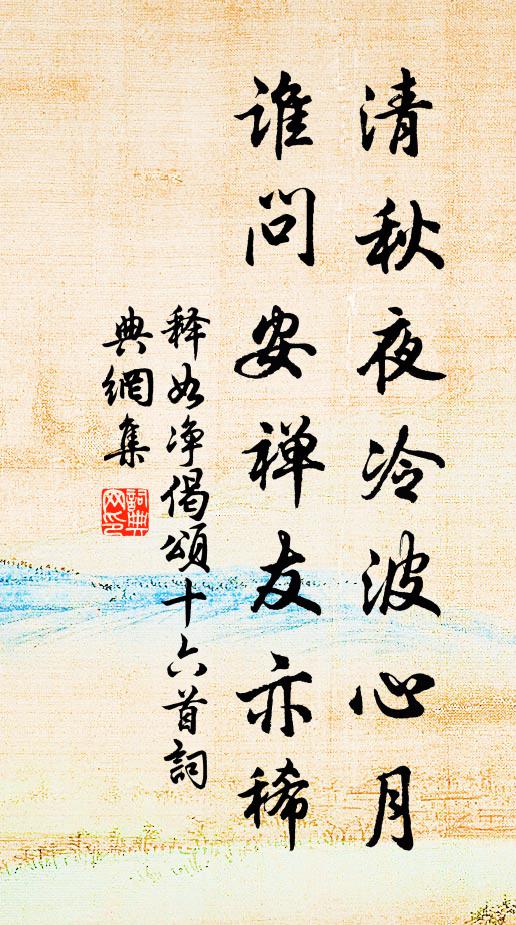 清秋夜冷波心月
誰問安禅友亦稀
释如净偈頌十六首詞
典網集
詞典
网印